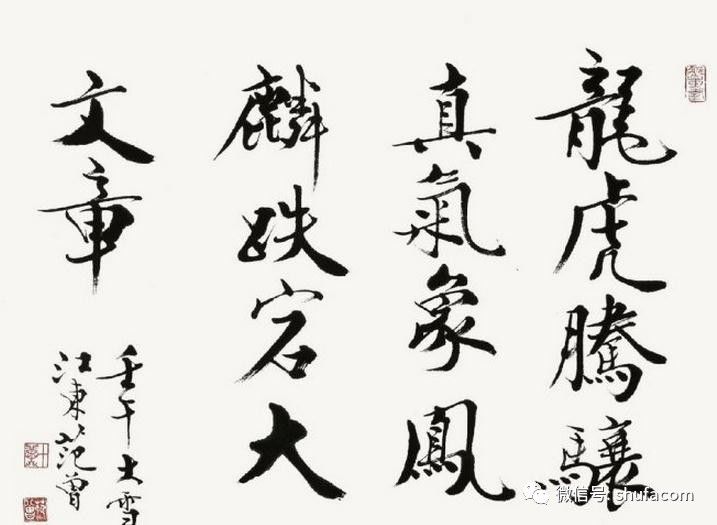 龍虎騰驤
真氣象鳳
麟跌宕大
文章
壬午大雪
江東范曾
微信号: shufacom